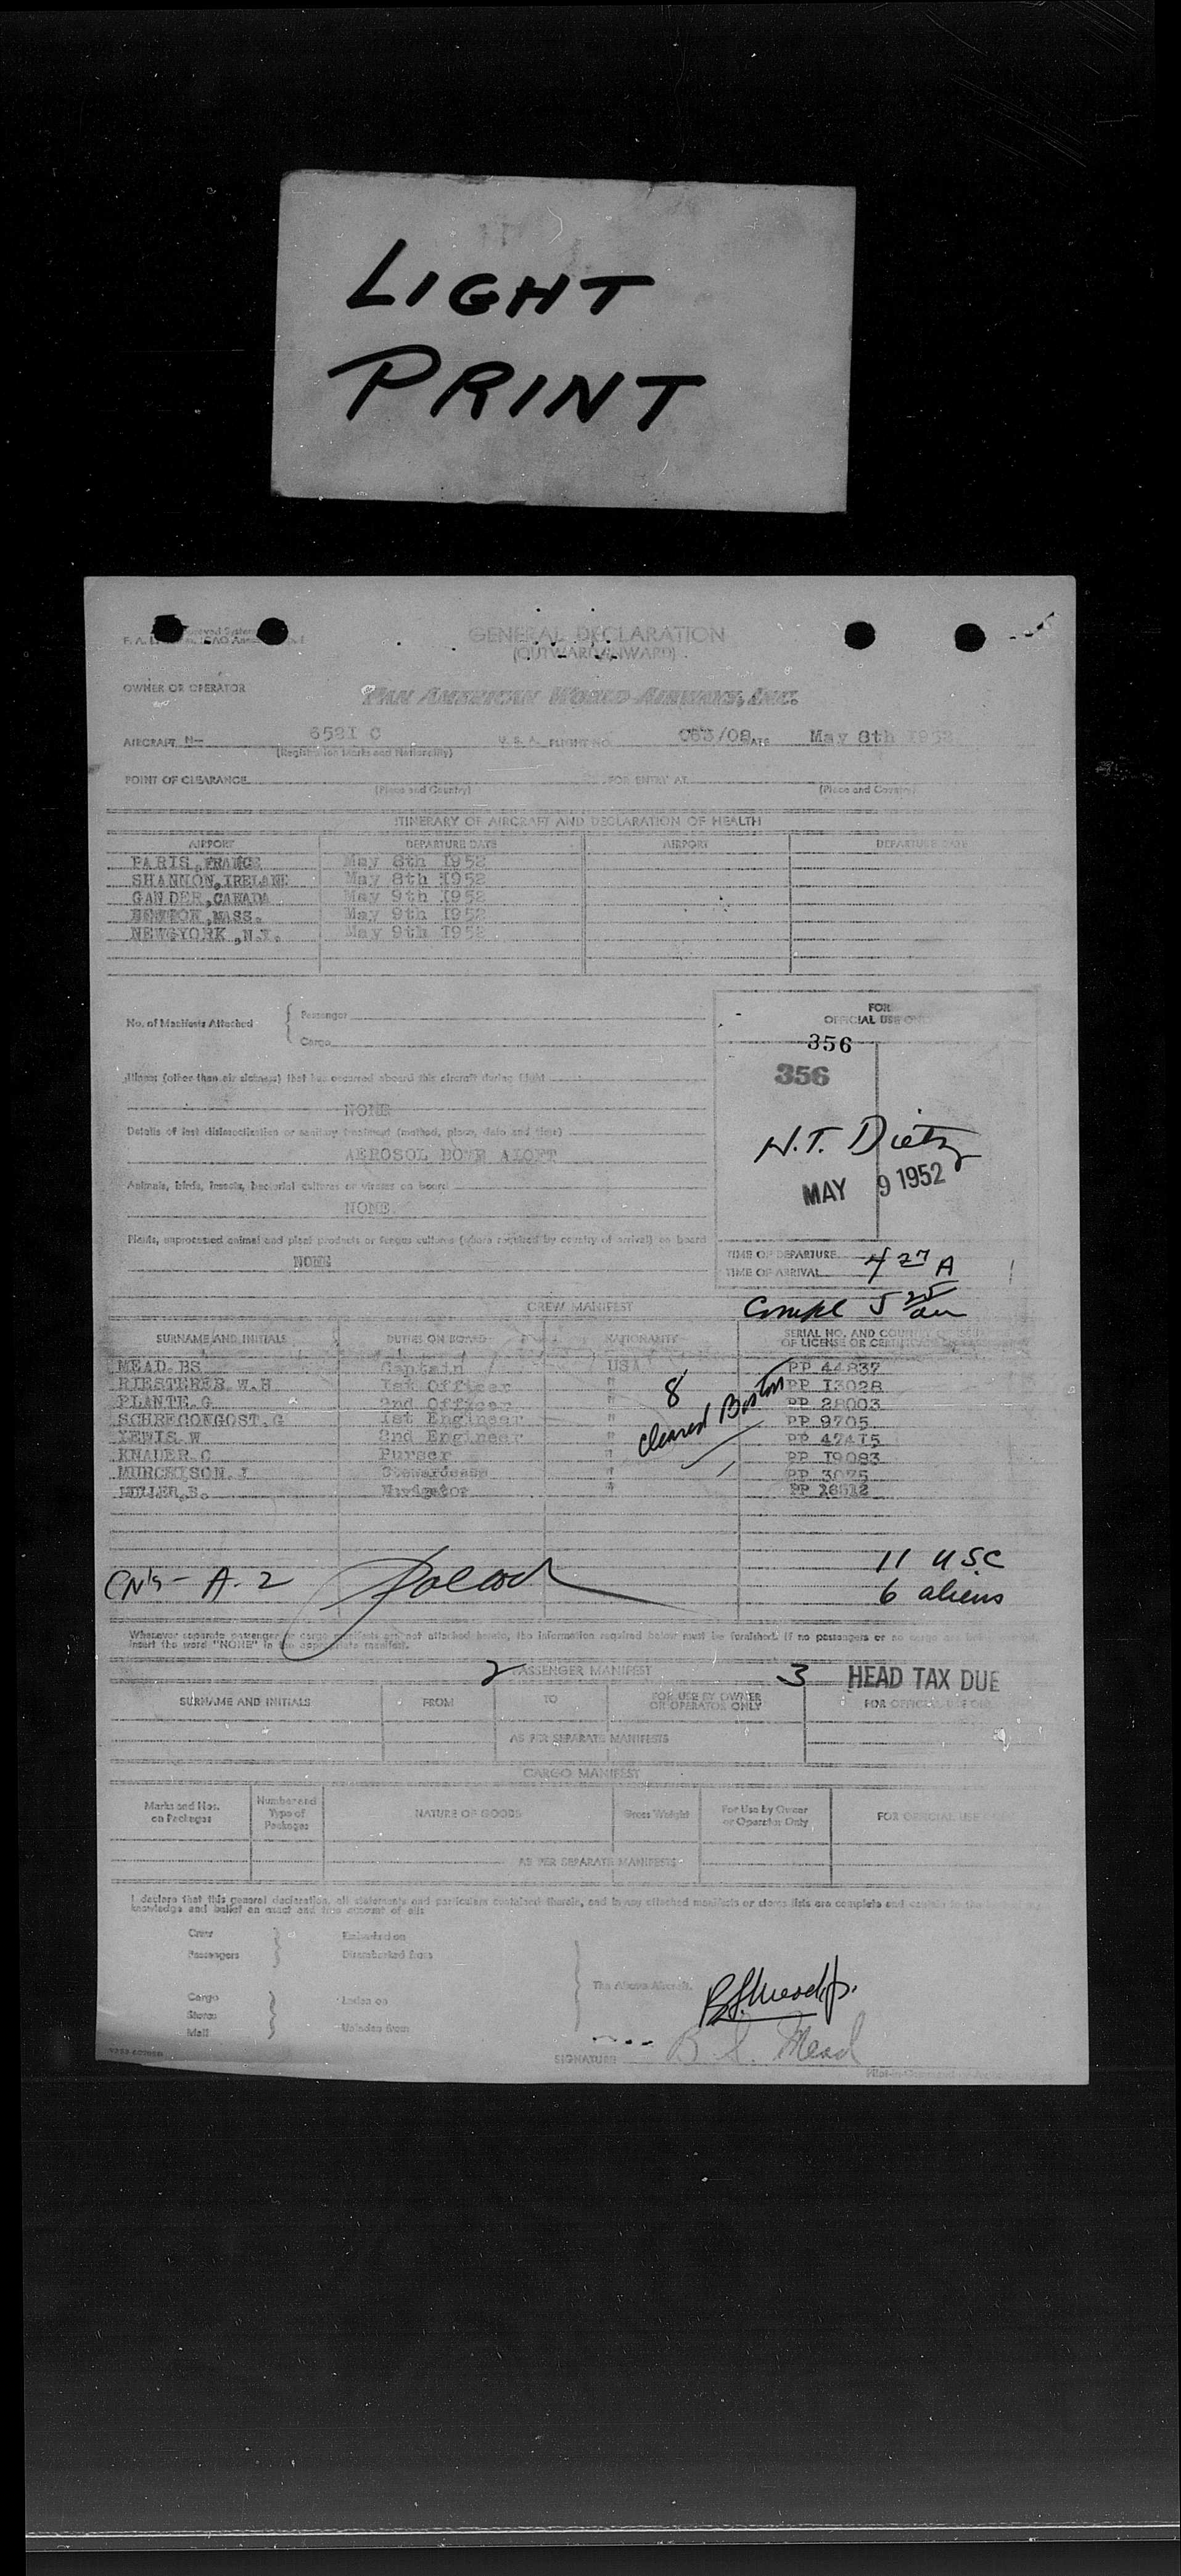 LIGHT
PRINT
GENERAL DECLARATION
(OUTWARD/INWARD)
OWNER OR OPERATOR
PAN AMERICAN WORLD AIRWAYS, INC.
AIRCRAFT N- 6521 C U. S. A. FLIGHT NO. 063/08 DATE May 8th 1952
(Registration Marks and Nationality)
POINT OF CLEARANCE FOR ENTRY AT
(Place and Country) (Place and Country)
ITINERARY OF AIRCRAFT AND DECLARATION OF HEALTH
AIRPORT DEPARTURE DATE AIRPORT DEPARTURE DATE
PARIS, FRANCE May 8th 1952
SHANNON, IRELAND May 8th 1952
GANDER, CANADA May 9th 1952
MASS. May 9th 1952
NEW YORK, N.Y. May 9th 1952
FOR
OFFICIAL USE ONLY
No. of Manifests Attached { Passenger
Cargo
356
356
Illness (other than air sickness) that has occurred aboard this aircraft during flight
NONE
Details of last disinsectization or sanitary treatment (method, place, date and time)
AEROSOL BOMB ALOFT
H.T. Dietz
MAY 9 1952
Animals, birds, insects, bacterial cultures or viruses on board
NONE
Plants, unprocessed animal and plant products or fungus cultures (where required by country of arrival) on board
NONE
TIME OF DEPARTURE
TIME OF ARRIVAL 4 27 A
Compl 5 25 am
CREW MANIFEST
SURNAME AND INITIALS DUTIES ON BOARD NATIONALITY SERIAL NO. AND COUNTRY OF ISSUE
OF LICENSE OR CERTIFICATE
MEAD. BS Captain USA PP 44837
RIESTERER. W.H 1st Officer " PP 13028
PLANTE. G 2nd Officer " PP 28003
SCHRECONGOST. G 1st Engineer " PP 9705
LEWIS. W 2nd Engineer " PP 47415
KNAUER. C Purser " PP 19083
MURCHISON. J Stewardess " PP 3075
MULLER, E. Navigator " PP 16512
8
cleared Boston
11 USC
A-2
6 aliens
Wherever separate passenger or cargo manifests are not attached hereto, the information required below must be furnished. If no passengers or no cargo
insert the word "NONE" in the appropriate manifest.
2 PASSENGER MANIFEST 3 HEAD TAX DUE
SURNAME AND INITIALS FROM TO FOR USE BY OWNER
OR OPERATOR ONLY FOR OFFICIAL USE ONLY
AS PER SEPARATE MANIFESTS
CARGO MANIFEST
Marks and Nos.
on Packages Number and
Type of
Packages NATURE OF GOODS Gross Weight For Use by Owner
or Operator Only FOR OFFICIAL USE
AS PER SEPARATE MANIFESTS
I declare that this general declaration, all statements and particulars contained therein, and in any attached manifests or stores lists are complete and
knowledge and belief an exact and true account of all:
Crew Embarked on
Passengers Disembarked from
The Above Aircraft.
Cargo Laden on
Stores
Mail Unladen from
B S Mead Jr.
SIGNATURE B. S. Mead